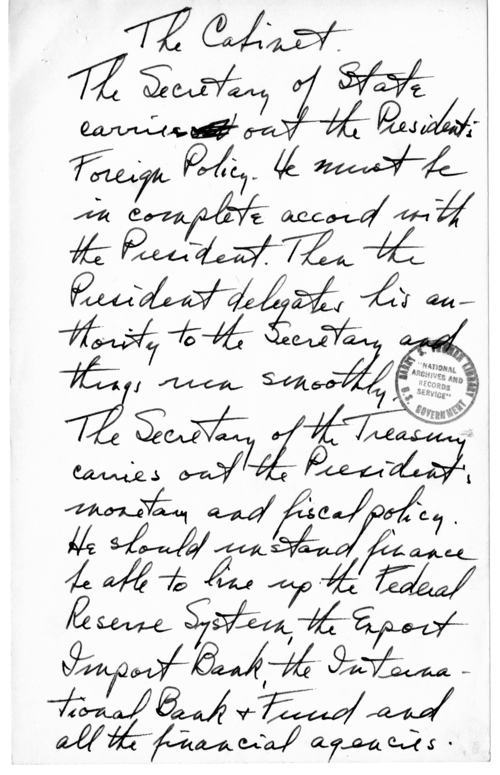 The Cabinet.
The Secretary of State
carries out the President's
Foreign Policy. He must be
in complete accord with
the President. Then the
President delegates his au-
thority to the Secretary and
things run smoothly.
HARRY S. TRUMAN LIBRARY
"NATIONAL
ARCHIVES AND
RECORDS
SERVICE"
U.S. GOVERNMENT
The Secretary of the Treasury
carries out the President's
monetary and fiscal policy.
He should unstand finance
be able to line up the Federal
Reserve System, the Export
Import Bank, the Interna-
tional Bank + Fund and
all the financial agencies.